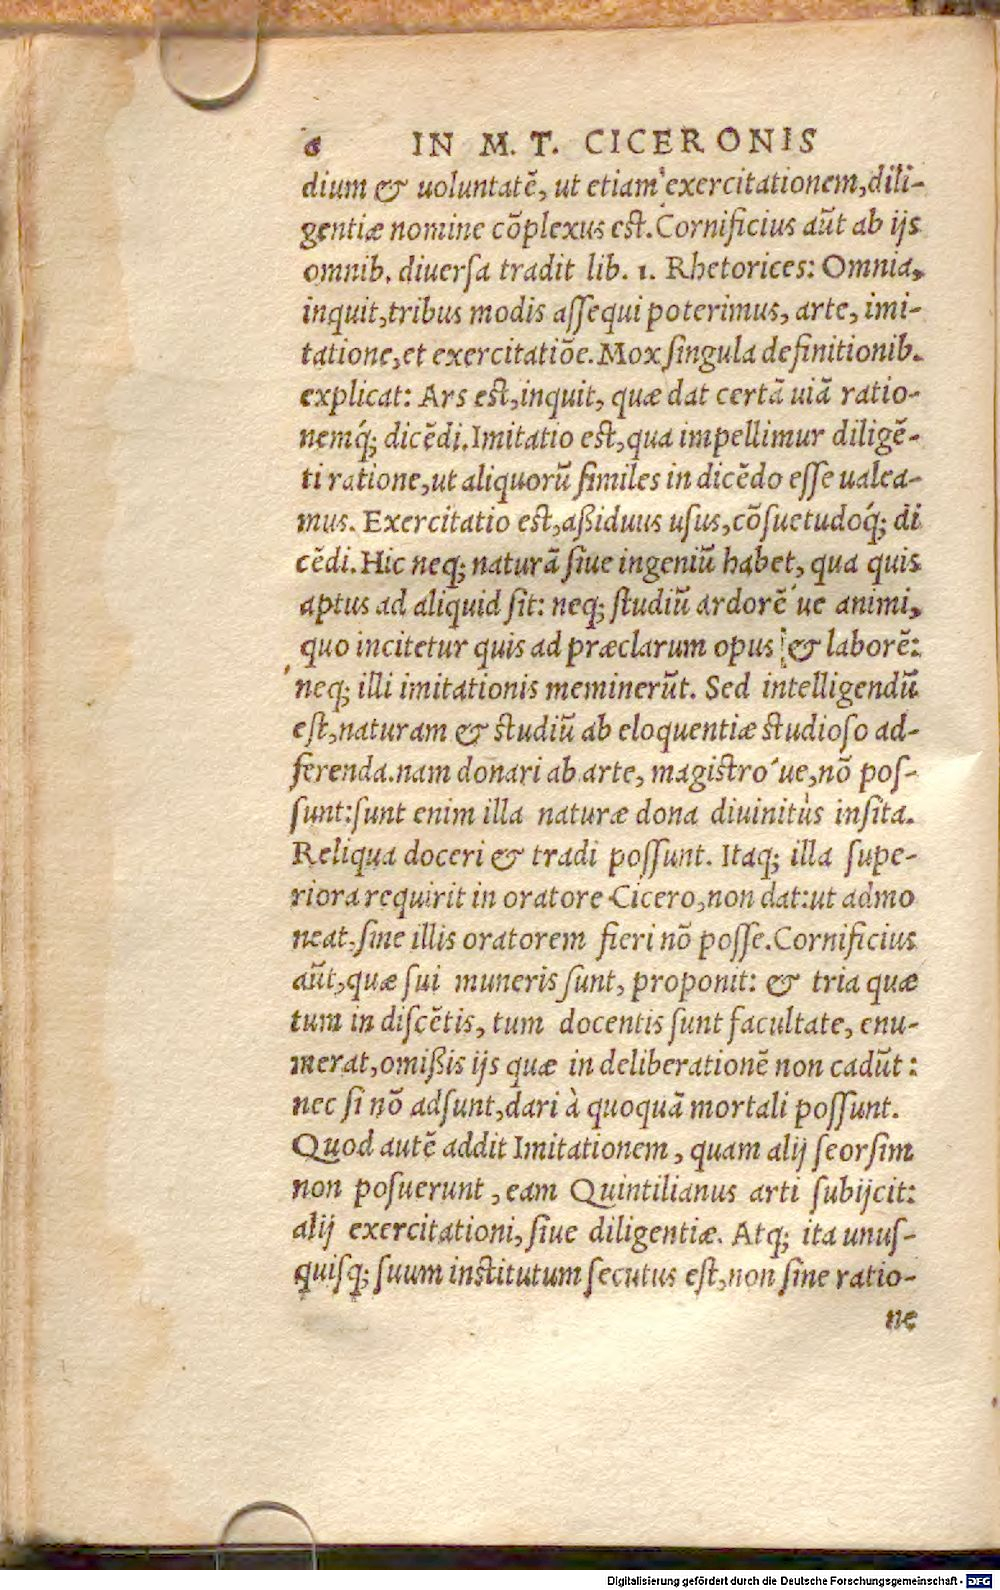 6 IN M. T. CICERONIS
dium & uoluntatē, ut etiam exercitationem, dili-
gentiæ nomine cōplexus est. Cornificius aūt ab ijs
omnib. diuersa tradit lib. 1. Rhetorices: Omnia,
inquit, tribus modis assequi poterimus, arte, imi-
tatione, et exercitatiōe. Mox singula definitionib.
explicat: Ars est, inquit, quæ dat certā uiā ratio-
nemq́; dicēdi. Imitatio est, qua impellimur diligē-
ti ratione, ut aliquorū similes in dicēdo esse ualea-
mus. Exercitatio est, aßiduus usus, cōsuetudoq́; di
cēdi. Hic neq; naturā siue ingeniū habet, qua quis
aptus ad aliquid sit: neq; studiū ardorē'ue animi,
quo incitetur quis ad præclarum opus & laborē:
neq; illi imitationis meminerūt. Sed intelligendū
est, naturam & studiū ab eloquentiæ studioso ad-
ferenda. nam donari ab arte, magistro'ue, nō pos-
sunt: sunt enim illa naturæ dona diuinitùs insita.
Reliqua doceri & tradi possunt. Itaq; illa supe-
riora requirit in oratore Cicero, non dat: ut admo
neat, sine illis oratorem fieri nō posse. Cornificius
aūt, quæ sui muneris sunt, proponit: & tria quæ
tum in discētis, tum docentis sunt facultate, enu-
merat, omißis ijs quæ in deliberationē non cadūt:
nec si nō adsunt, dari à quoquā mortali possunt.
Quod autē addit Imitationem, quam alij seorsim
non posuerunt, eam Quintilianus arti subijcit:
alij exercitationi, siue diligentiæ. Atq; ita unus-
quisq; suum institutum secutus est, non sine ratio-
ne
Digitalisierung gefördert durch die Deutsche Forschungsgemeinschaft - DFG